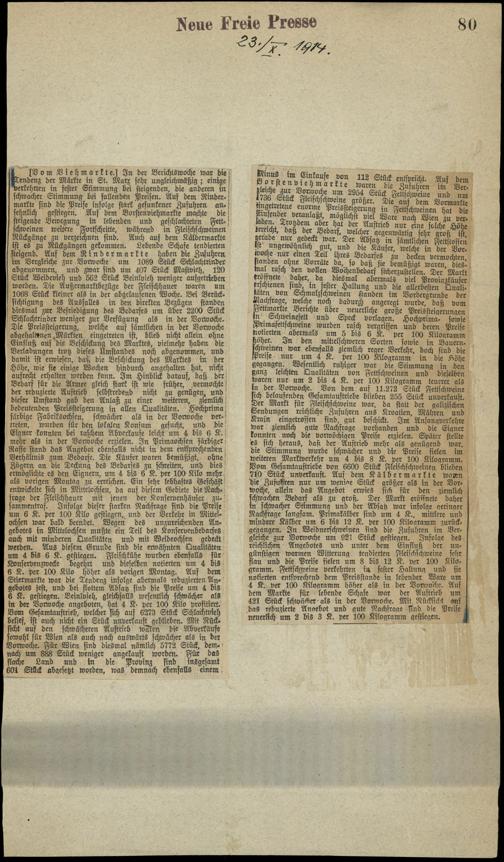 Neue Freie Presse
80
23./X. 1914.
[Vom Viehmarkte.] In der Berichtswoche war die
Tendenz der Märkte in St. Marx sehr ungleichmäßig; einige
verkehrten in fester Stimmung bei steigenden, die anderen in
schwacher Stimmung bei fallenden Preisen. Auf dem Rinder-
markte sind die Preise infolge stark gesunkener Zufuhren an-
sehnlich gestiegen. Auf dem Borstenviehmarkte machte die
steigende Bewegung in lebenden und geschlachteten Fett-
schweinen weitere Fortschritte, während in Fleischschweinen
Rückgänge zu verzeichnen sind. Auch auf dem Kälbermarkte
ist es zu Rückgängen gekommen. Lebende Schafe tendierten
steigend. Auf dem Rindermarkte haben die Zufuhren
im Vergleiche zur Vorwoche um 1089 Stück Schlachtrinder
abgenommen, und zwar sind um 407 Stück Mastvieh, 120
Stück Weidevieh und 562 Stück Beinlvieh weniger aufgetrieben
worden. Die Außermarktbezüge der Fleischhauer waren um
1068 Stück kleiner als in der abgelaufenen Woche. Bei Berück-
sichtigung des Ausfalles in den direkten Bezügen standen
diesmal zur Befriedigung des Bedarfes um über 2200 Stück
Schlachtrinder weniger zur Verfügung als in der Vorwoche.
Die Preissteigerung, welche auf sämtlichen in der Vorwoche
abgehaltenen Märkten eingetreten ist, blieb nicht allein ohne
Einfluß auf die Beschickung des Marktes, vielmehr haben die
Verladungen trotz dieses Umstandes noch abgenommen, und
damit ist erwiesen, daß die Beschickung des Marktes in der
Höhe, wie sie einige Wochen hindurch angehalten hat, nicht
aufrecht erhalten werden kann. Im Hinblick darauf, daß der
Bedarf für die Armee gleich stark ist wie früher, vermochte
der reduzierte Auftrieb selbstredend nicht zu genügen, und
dieser Umstand gab den Anlaß zu einer weiteren, ziemlich
bedeutenden Preissteigerung in allen Qualitäten. Hochprima
färbige Fabriksochsen, schwächer als in der Vorwoche ver-
treten, wurden für den lokalen Konsum gesucht, und die
Eigner konnten bei raschem Abverkaufe leicht um 4 bis 6 K.
mehr als in der Vorwoche erzielen. In Primaochsen färbiger
Rasse stand das Angebot ebenfalls nicht in dem entsprechenden
Verhältnis zum Bedarfe. Die Käufer waren bemüßigt, ohne
Zögern an die Deckung des Bedarfes zu schreiten, und dies
ermöglichte es den Eignern, um 4 bis 6 K. per 100 Kilo mehr
als vorigen Montag zu erreichen. Ein sehr lebhaftes Geschäft
entwickelte sich in Mittelochsen, da auf diesem Gebiete die Nach-
frage der Fleischhauer mit jener der Konservenhäuser zu-
sammentraf. Infolge dieser starken Nachfrage sind die Preise
um 6 K. per 100 Kilo gestiegen, und der Verkehr in Mittel-
ochsen war bald beendet. Wegen des unzureichenden An-
gebotes in Mittelochsen mußte ein Teil des Konservenbedarfes
auch mit minderen Qualitäten und mit Weideochsen gedeckt
werden. Aus diesem Grunde sind die erwähnten Qualitäten
um 4 bis 6 K. gestiegen. Fleischkühe wurden ebenfalls für
Konservenzwecke begehrt und dieselben notierten um 4 bis
6 K. per 100 Kilo höher als vorigen Montag. Auf dem
Stiermarkte war die Tendenz infolge abermals reduzierten An-
gebotes fest, und bei flottem Absatz sind die Preise um 4 bis
6 K. gestiegen. Beinlvieh, gleichfalls wesentlich schwächer als
in der Vorwoche angeboten, hat 4 K. per 100 Kilo profitiert.
Vom Gesamtauftriebe, welcher sich auf 6273 Stück Schlachtvieh
belief, ist auch nicht ein Stück unverkauft geblieben. Mit Rück-
sicht auf den schwächeren Auftrieb waren die Abverkäufe
sowohl für Wien als auch nach auswärts schwächer als in der
Vorwoche. Für Wien sind diesmal nämlich 5772 Stück, dem-
nach um 888 Stück weniger angekauft worden. Für das
flache Land und in die Provinz sind insgesamt
601 Stück abgesetzt worden, was demnach ebenfalls einem
Minus im Einkaufe von 112 Stück entspricht. Auf dem
Borstenviehmarkte waren die Zufuhren im Ver-
gleiche zur Vorwoche um 2954 Stück Fettschweine und um
1736 Stück Fleischschweine größer. Die auf dem Vormarkte
eingetretene enorme Preissteigerung in Fettschweinen hat die
Einsender veranlaßt, möglichst viel Ware nach Wien zu ver-
laden. Trotzdem aber hat der Auftrieb nur eine solche Höhe
erreicht, daß der Bedarf, welcher gegenwärtig sehr groß ist,
gerade nur gedeckt war. Der Absatz in sämtlichen Fettschweinen
ist ungewöhnlich gut, und die Käufer, welche in der Vor-
woche nur einen Teil ihres Bedarfes zu decken vermochten,
standen ohne Vorräte da, so daß sie bemüßigt waren, dies-
mal rasch den vollen Wochenbedarf sicherzustellen. Der Markt
eröffnete daher, da diesmal abermals viel Provinzkäufer
erschienen sind, in fester Haltung und die allerbesten Quali-
täten von Schmalzschweinen standen im Vordergrunde der
Nachfrage, welche noch dadurch angeregt wurde, daß vom
Fettmarkte Berichte über neuerliche große Preissteigerungen
in Schweinefett und Speck vorlagen. Hochprima- sowie
Primafettschweine wurden rasch vergriffen und deren Preise
notierten abermals um 5 bis 6 K. per 100 Kilogramm
höher. In den mittelschweren Sorten sowie in Bauern-
schweinen war ebenfalls ziemlich reger Verkehr, doch sind die
Preise nur um 4 K. per 100 Kilogramm in die Höhe
gegangen. Wesentlich ruhiger war die Stimmung in den
ganz leichten Qualitäten von Fettschweinen und dieselben
waren nur um 2 bis 4 K. per 100 Kilogramm teurer als
in der Vorwoche. Von dem auf 11.272 Stück Fettschweine
sich belaufenden Gesamtauftriebe blieben 355 Stück unverkauft.
Der Markt für Fleischschweine war, da statt der galizischen
Sendungen reichliche Zufuhren aus Kroatien, Mähren und
Krain eingetroffen sind, gut beschickt. Im Anfangsverkehre
war ziemlich gute Nachfrage vorhanden und die Eigner
konnten noch die vorwöchigen Preise erzielen. Später stellte
es sich heraus, daß der Auftrieb mehr als genügend war,
die Stimmung wurde schwächer und die Preise fielen im
weiteren Marktverkehr um 4 bis 8 K. per 100 Kilogramm.
Vom Gesamtauftriebe von 6600 Stück Fleischschweinen blieben
710 Stück unverkauft. Auf dem Kälbermarkte waren
die Zufuhren nur um wenige Stück größer als in der Vor-
woche, allein das Angebot erwies sich für den ziemlich
schwachen Bedarf als zu groß. Der Markt eröffnete daher
in schwacher Stimmung und der Absatz war infolge geringer
Nachfrage langsam. Primakälber sind um 4 K., mittlere und
mindere Kälber um 6 bis 12 K. per 100 Kilogramm zurück-
gegangen. In Weidnerschweinen sind die Zufuhren im Ver-
gleiche zur Vorwoche um 921 Stück gestiegen. Infolge des
reichlichen Angebotes und unter dem Einfluß der un-
günstigen warmen Witterung tendierten Fleischschweine sehr
flau und die Preise fielen um 8 bis 12 K. per 100 Kilo-
gramm. Fettschweine verkehrten in fester Haltung und
notierten entsprechend dem Preisstande in lebender Ware um
4 K. per 100 Kilogramm höher als in der Vorwoche. Auf
dem Markte für lebende Schafe war der Auftrieb um
421 Stück schwächer als in der Vorwoche. Mit Rücksicht auf
das reduzierte Angebot und gute Nachfrage sind die Preise
neuerlich um 2 bis 3 K. per 100 Kilogramm gestiegen.